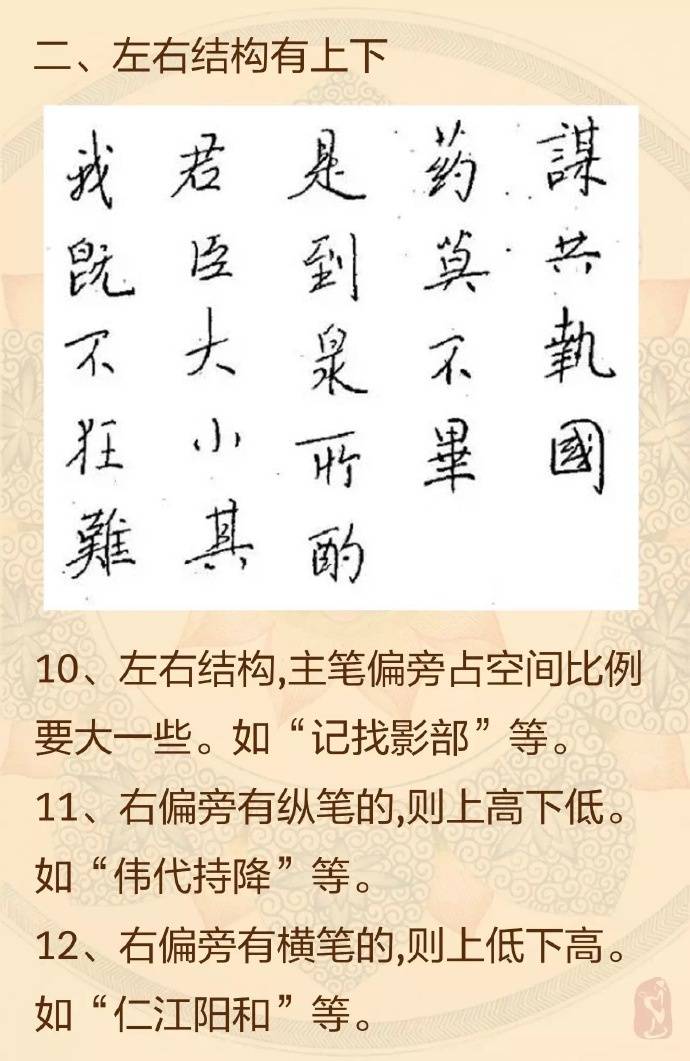 二、左右结构有上下
謀共執國
药莫不畢
是到泉所酌
君臣大小其
我既不狂難
10、左右结构,主笔偏旁占空间比例
要大一些。如“记找影部”等。
11、右偏旁有纵笔的,则上高下低。
如“伟代持降”等。
12、右偏旁有横笔的,则上低下高。
如“仁江阳和”等。